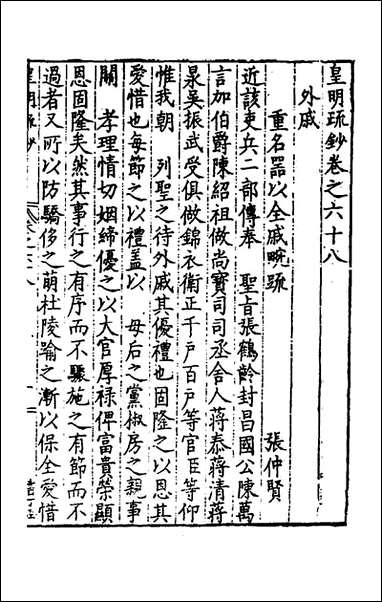 皇明疏鈔卷之六十八
外戚
重名器以全戚畹疏 張仲賢
近該吏兵二部傳奉 聖旨張鶴齡封昌國公陳萬
言加伯爵陳紹祖做尚寶司司丞舍人蔣泰蔣清蔣
杲吳振武受俱做錦衣衛正千戶百戶等官臣等仰
惟我朝 列聖之待外戚其優禮也固隆之以恩其
愛惜也每節之以禮蓋以 母后之黨椒房之親事
關 孝理情切姻締優之以大官厚祿俾富貴榮顯
恩固隆矣然其事行之有序而不驟施之有節而不
過者又所以防驕侈之萌杜陵踰之漸以保全愛惜